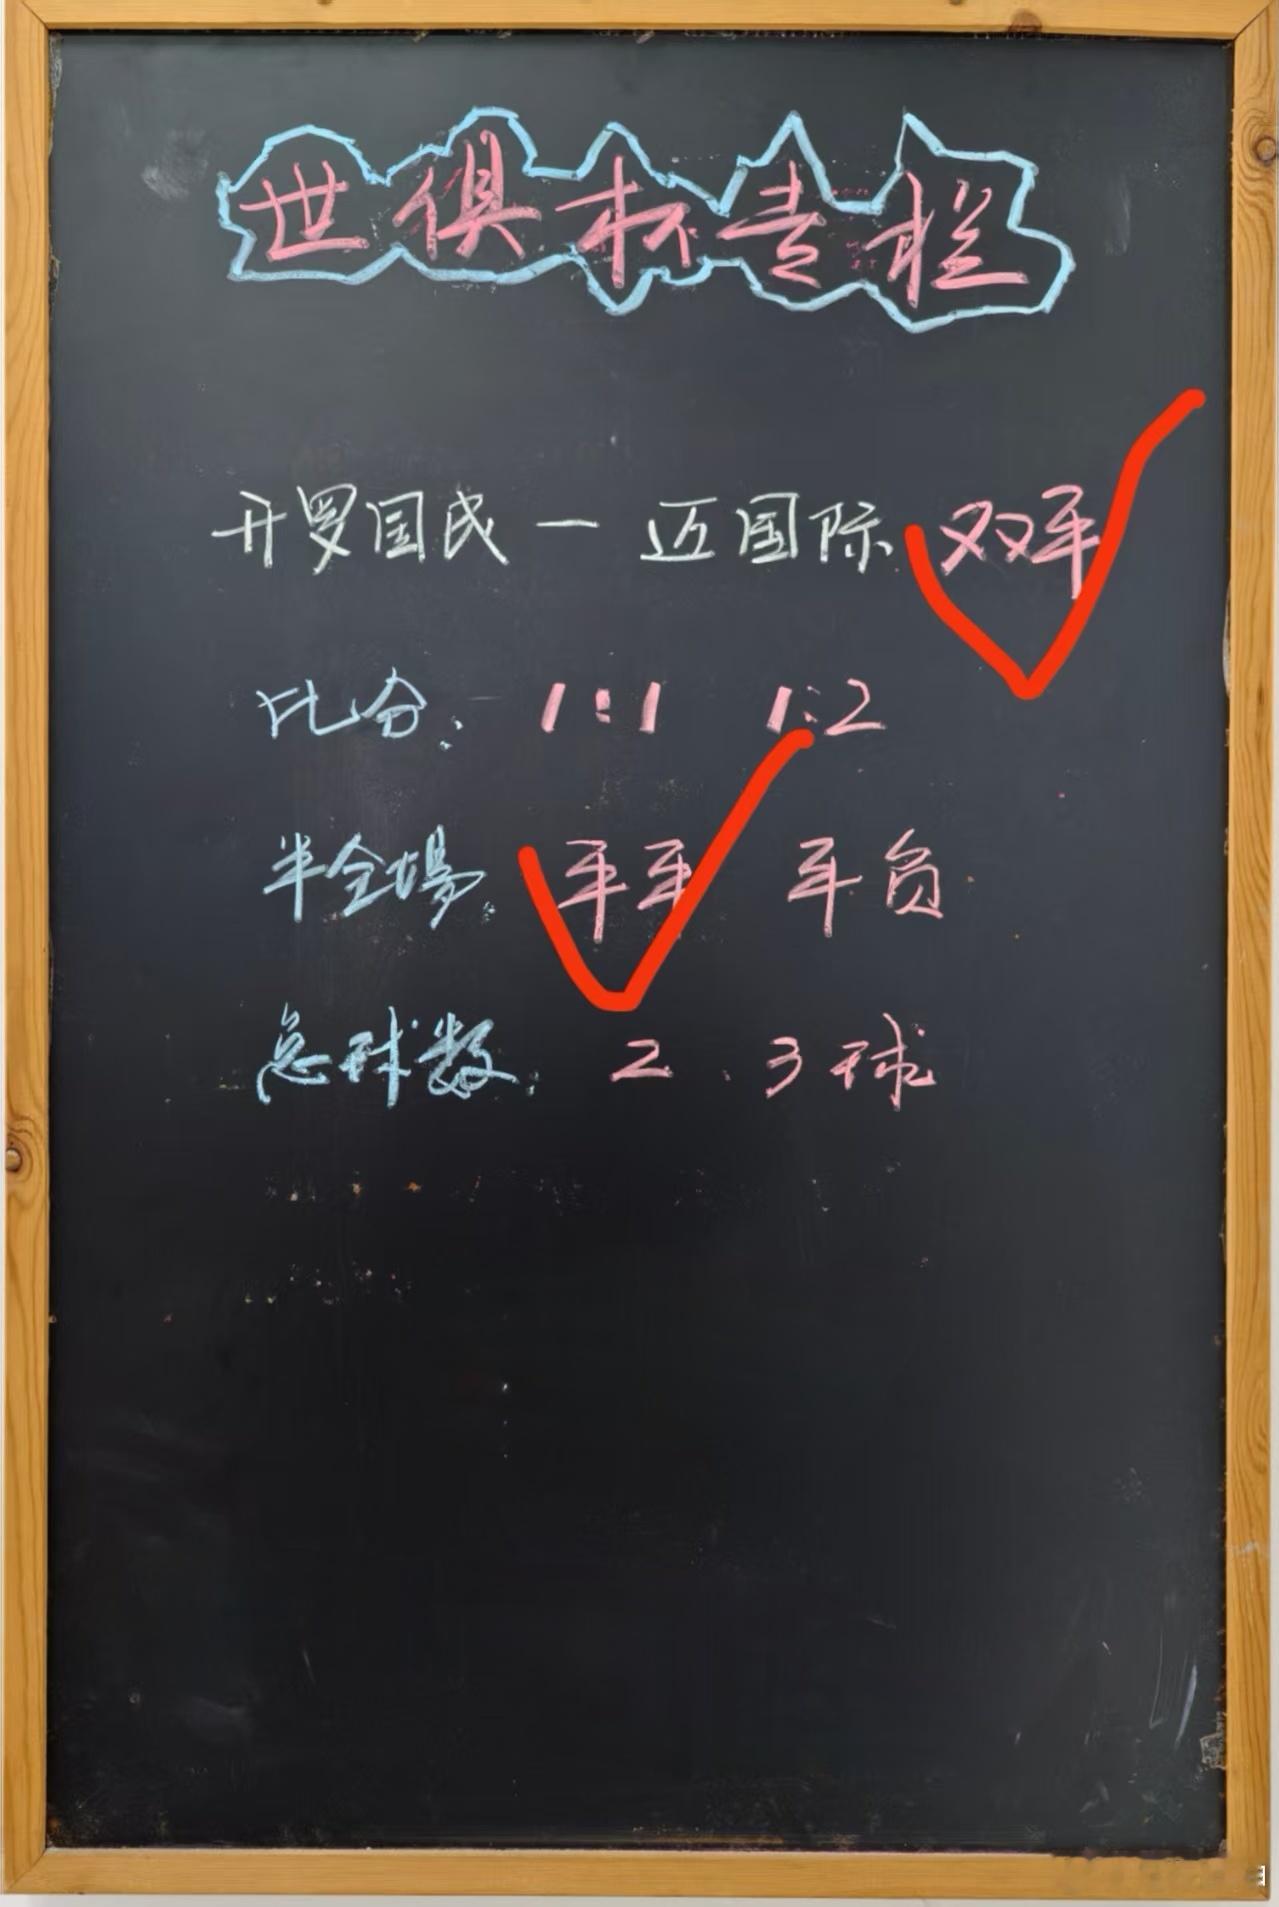 世俱杯专栏
开罗国民 — 迈国际 双平
比分: 1:1 1:2
半全場: 平平 平负
总球数: 2.3球